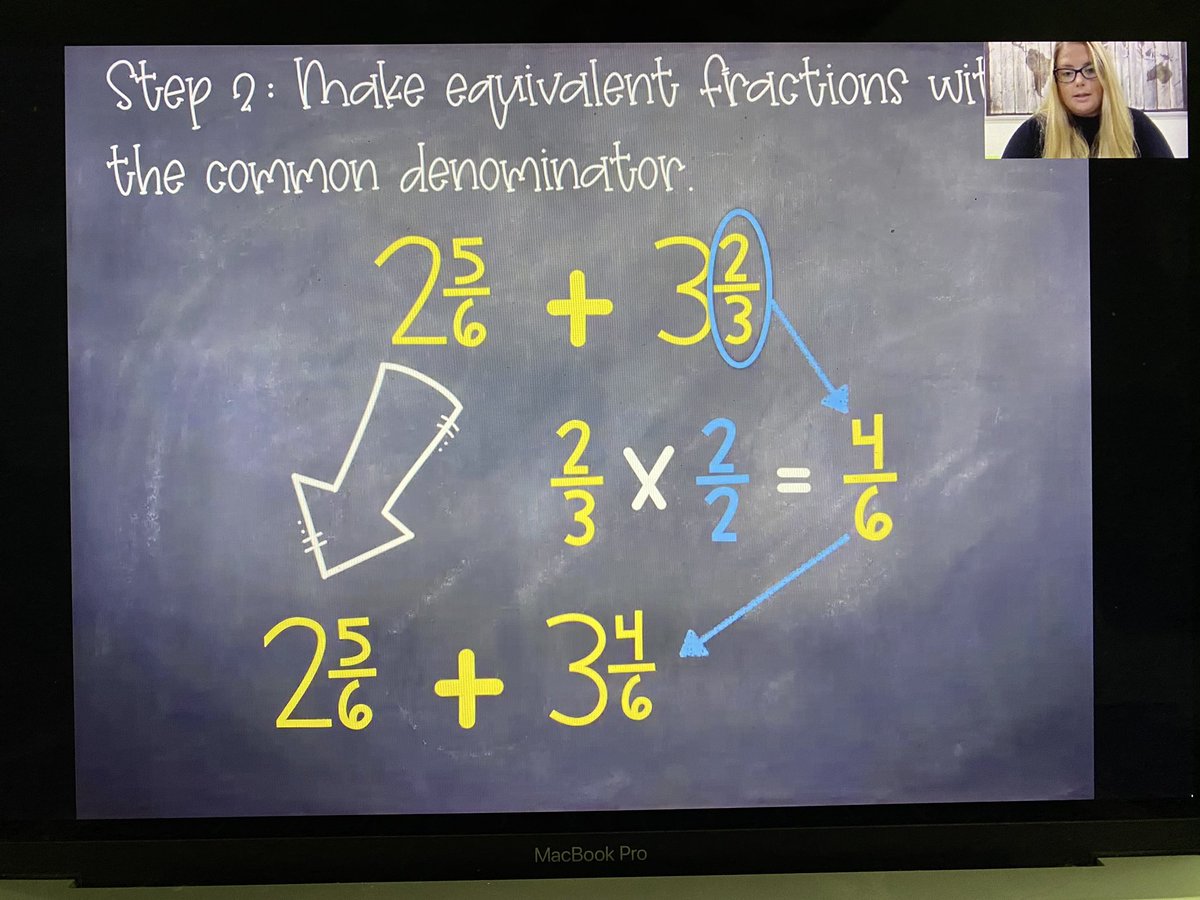 Step 2: Make equivalent fractions wit
the common denominator.
2 5/6 + 3 2/3
2/3 x 2/2 = 4/6
2 5/6 + 3 4/6
MacBook Pro